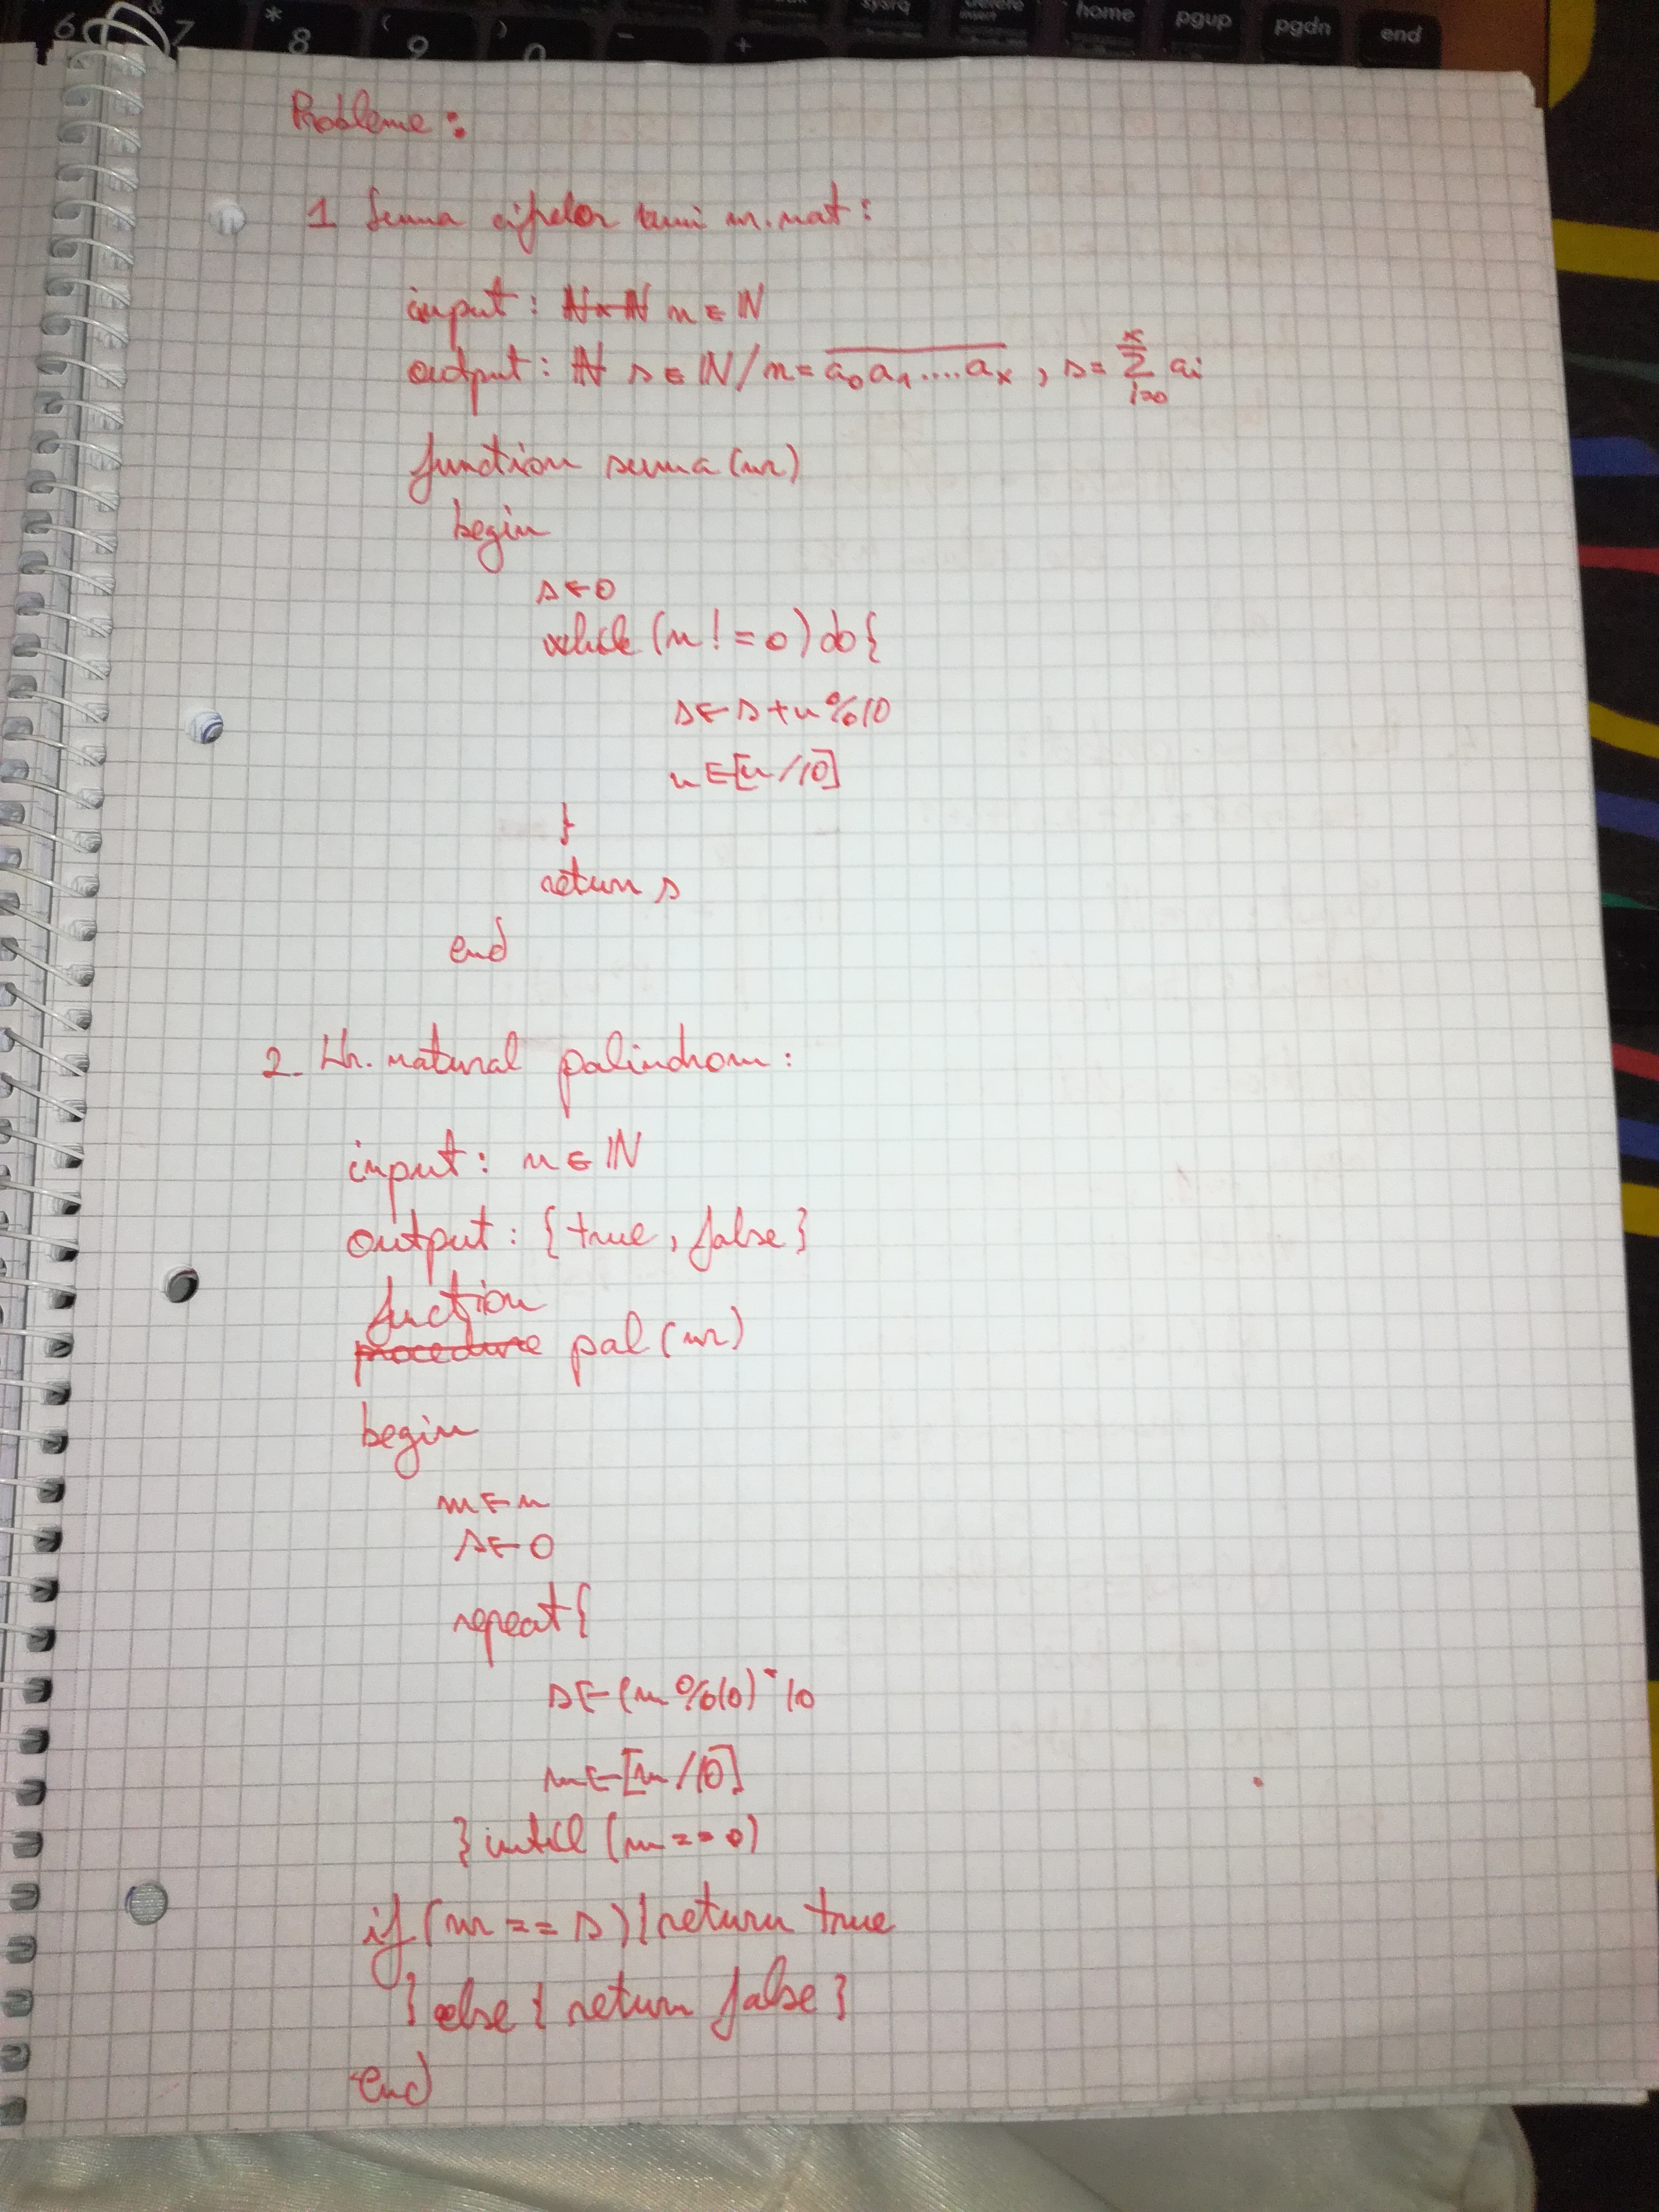 6 & 7 * 8 ( 9 ) 0 - + sysrq delete insert home pgup pgdn end
Probleme:
1 Suma cifrelor unui nr. nat:
input: N×N n ∈ N
output: N s ∈ N / n = a₀a₁....aₓ , s = Σ aᵢ
x
i=0
function suma (nr)
begin
s ← 0
while (n != 0) do {
s ← s + n % 10
n ← [n / 10]
}
return s
end
2. Nr. natural palindrom:
input: n ∈ N
output: {true, false}
fuction
procedure pal (nr)
begin
m ← n
s ← 0
repeat {
s ← (m % 10) * 10
m ← [m / 10]
} until (m == 0)
if (nr == s) { return true
} else { return false }
end